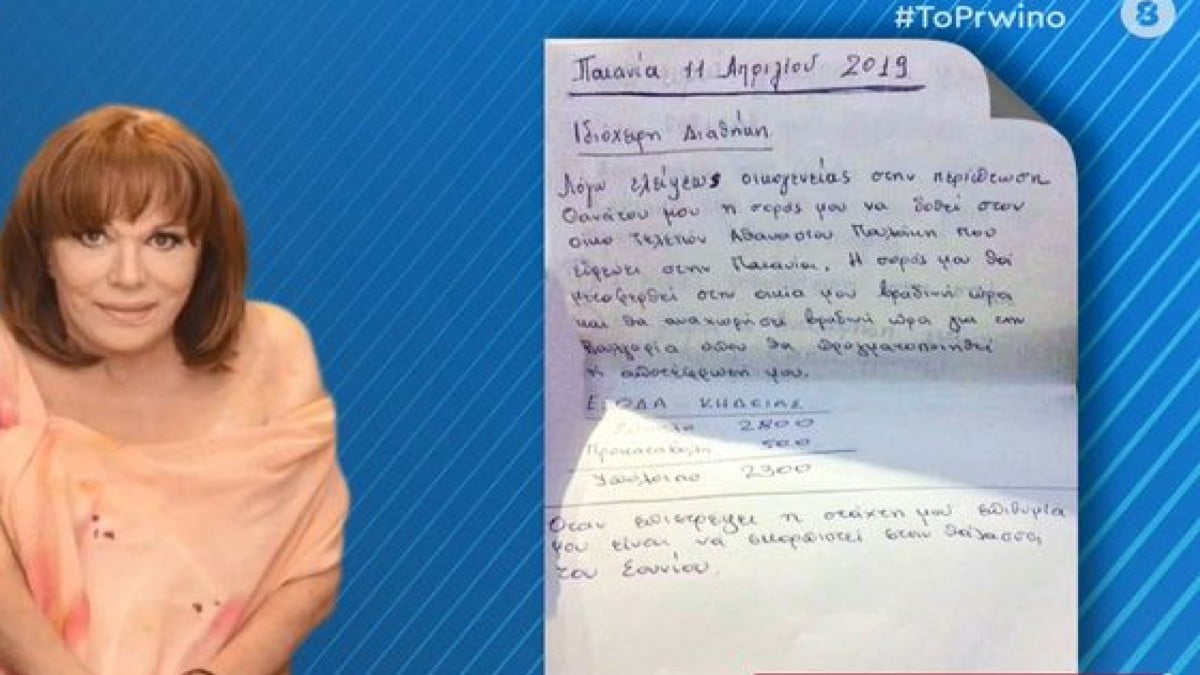 #ToPrwino
8
Παιανία 11 Απριλίου 2019
Ιδιόχειρη Διαθήκη
Λόγω ελείψεως οικογενείας στην περίπτωση
θανάτου μου η σορός μου να δοθεί στον
οίκο τελετών Αθανασίου που
στην Παιανία. Η σορός μου θα
μεταφερθεί στην οικία μου βραδινή ώρα
και θα αναχωρήσει βραδινή ώρα για την
Βουλγαρία όπου θα πραγματοποιηθεί
η αποτέφρωσή μου.
ΕΞΟΔΑ ΚΗΔΕΙΑΣ
Προκαταβολή 500
Υπόλοιπο 2300
Όταν επιστρέψει η στάχτη μου επιθυμία
μου είναι να σκορπιστεί στην θάλασσα
του Σουνίου.